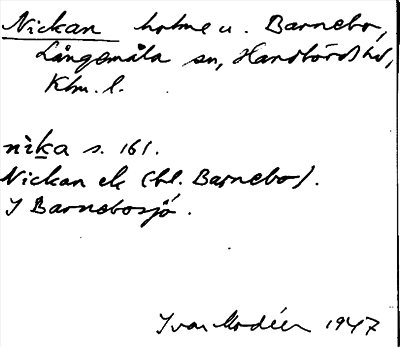 Nickan holme u. Barnebo,
Långemåla sn, Handbörds hd,
Klm. l.
nika s. 161.
Nickan ek (bl. Barnebo).
I Barnebosjö.
Ivar Modéer 1947